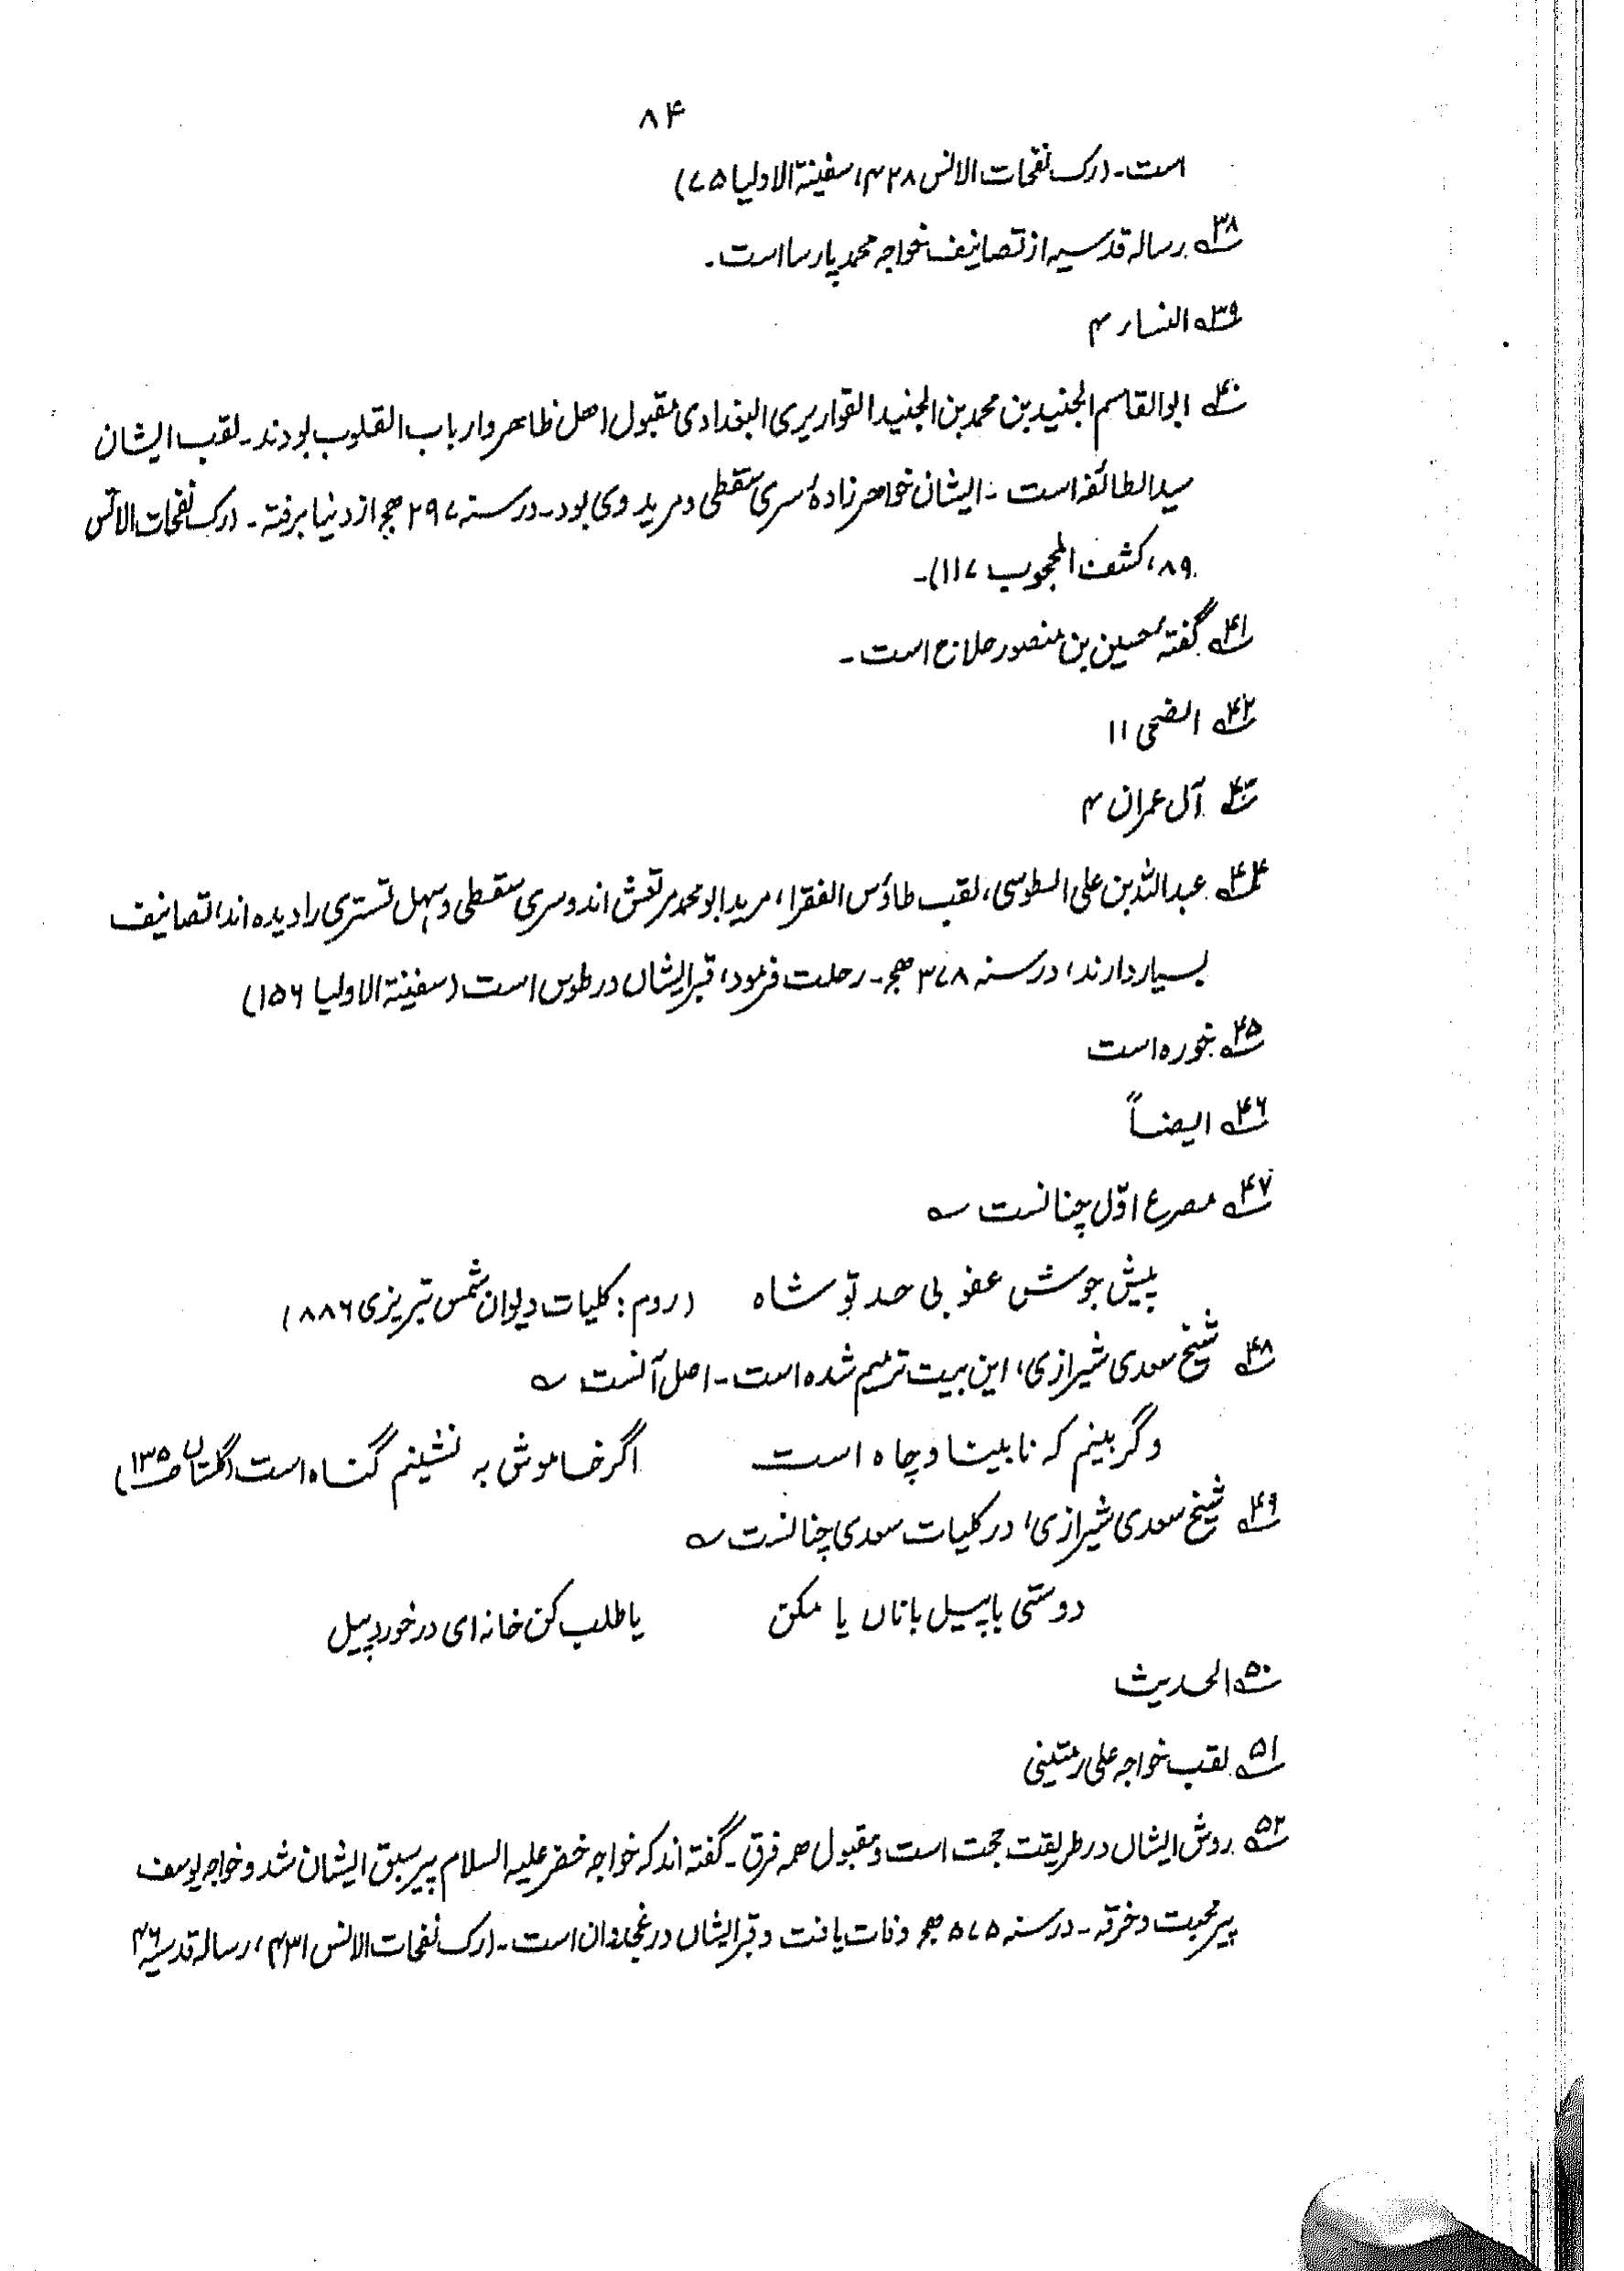 ۸۴
است۔ (رک نفحات الانس ۴۲۸، سفینۃ الاولیا ۷۵)
۳۸ رسالہ قدسیہ از تصانیف خواجہ محمد پارسا است۔
۳۹ النساء ۴
۴۰ ابوالقاسم الجنید بن محمد بن الجنید القواریری البغدادی مقبول اھل ظاھر و ارباب القلوب بودند۔ لقب ایشان
سید الطائفہ است۔ ایشان خواھر زادۂ سری سقطی و مرید وی بود۔ در سنہ ۲۹۷ ھج از دنیا برفتہ۔ (رک نفحات الانس
۸۹، کشف المحجوب ۱۱۷)۔
۴۱ گفتہ حسین بن منصور حلاج است۔
۴۲ الضحی ۱۱
۴۳ آل عمران ۴
۴۴ عبداللہ بن علی الطوسی، لقب طاؤس الفقرا، مرید ابو محمد مرتعش اند و سری سقطی و سہل تستری را دیدہ اند، تصانیف
بسیار دارند، در سنہ ۳۷۸ ھج۔ رحلت فرمود، قبر ایشاں در طوس است (سفینۃ الاولیا ۱۵۶)
۴۵ بخورہ است
۴۶ ایضاً
۴۷ مصرع اوّل چنانست ؎
پیش جوش عفو بی حد تو شاہ (روم: کلیات دیوان شمس تبریزی ۸۸۶)
۴۸ شیخ سعدی شیرازی، این بیت ترمیم شدہ است۔ اصل آنست ؎
وگر بینم کہ نابینا و چاہ است اگر خاموش بہ نشینم گناہ است (گلستاں ص ۱۳۵)
۴۹ شیخ سعدی شیرازی، در کلیات سعدی چنانست ؎
دوستی با پیل باناں یا مکن یا طلب کن خانہ ای در خورد پیل
۵۰ الحدیث
۵۱ لقب خواجہ علی رمتینی
۵۲ روش ایشاں در طریقت حجت است و مقبول ھمہ فرق۔ گفتہ اند کہ خواجہ خضر علیہ السلام پیر سبق ایشان شد و خواجہ یوسف
پیر صحبت و خرقہ۔ در سنہ ۵۷۵ ھج وفات یافت و قبر ایشاں در غجدوان است۔ (رک نفحات الانس ۴۳۱، رسالہ قدسیہ ۴۶